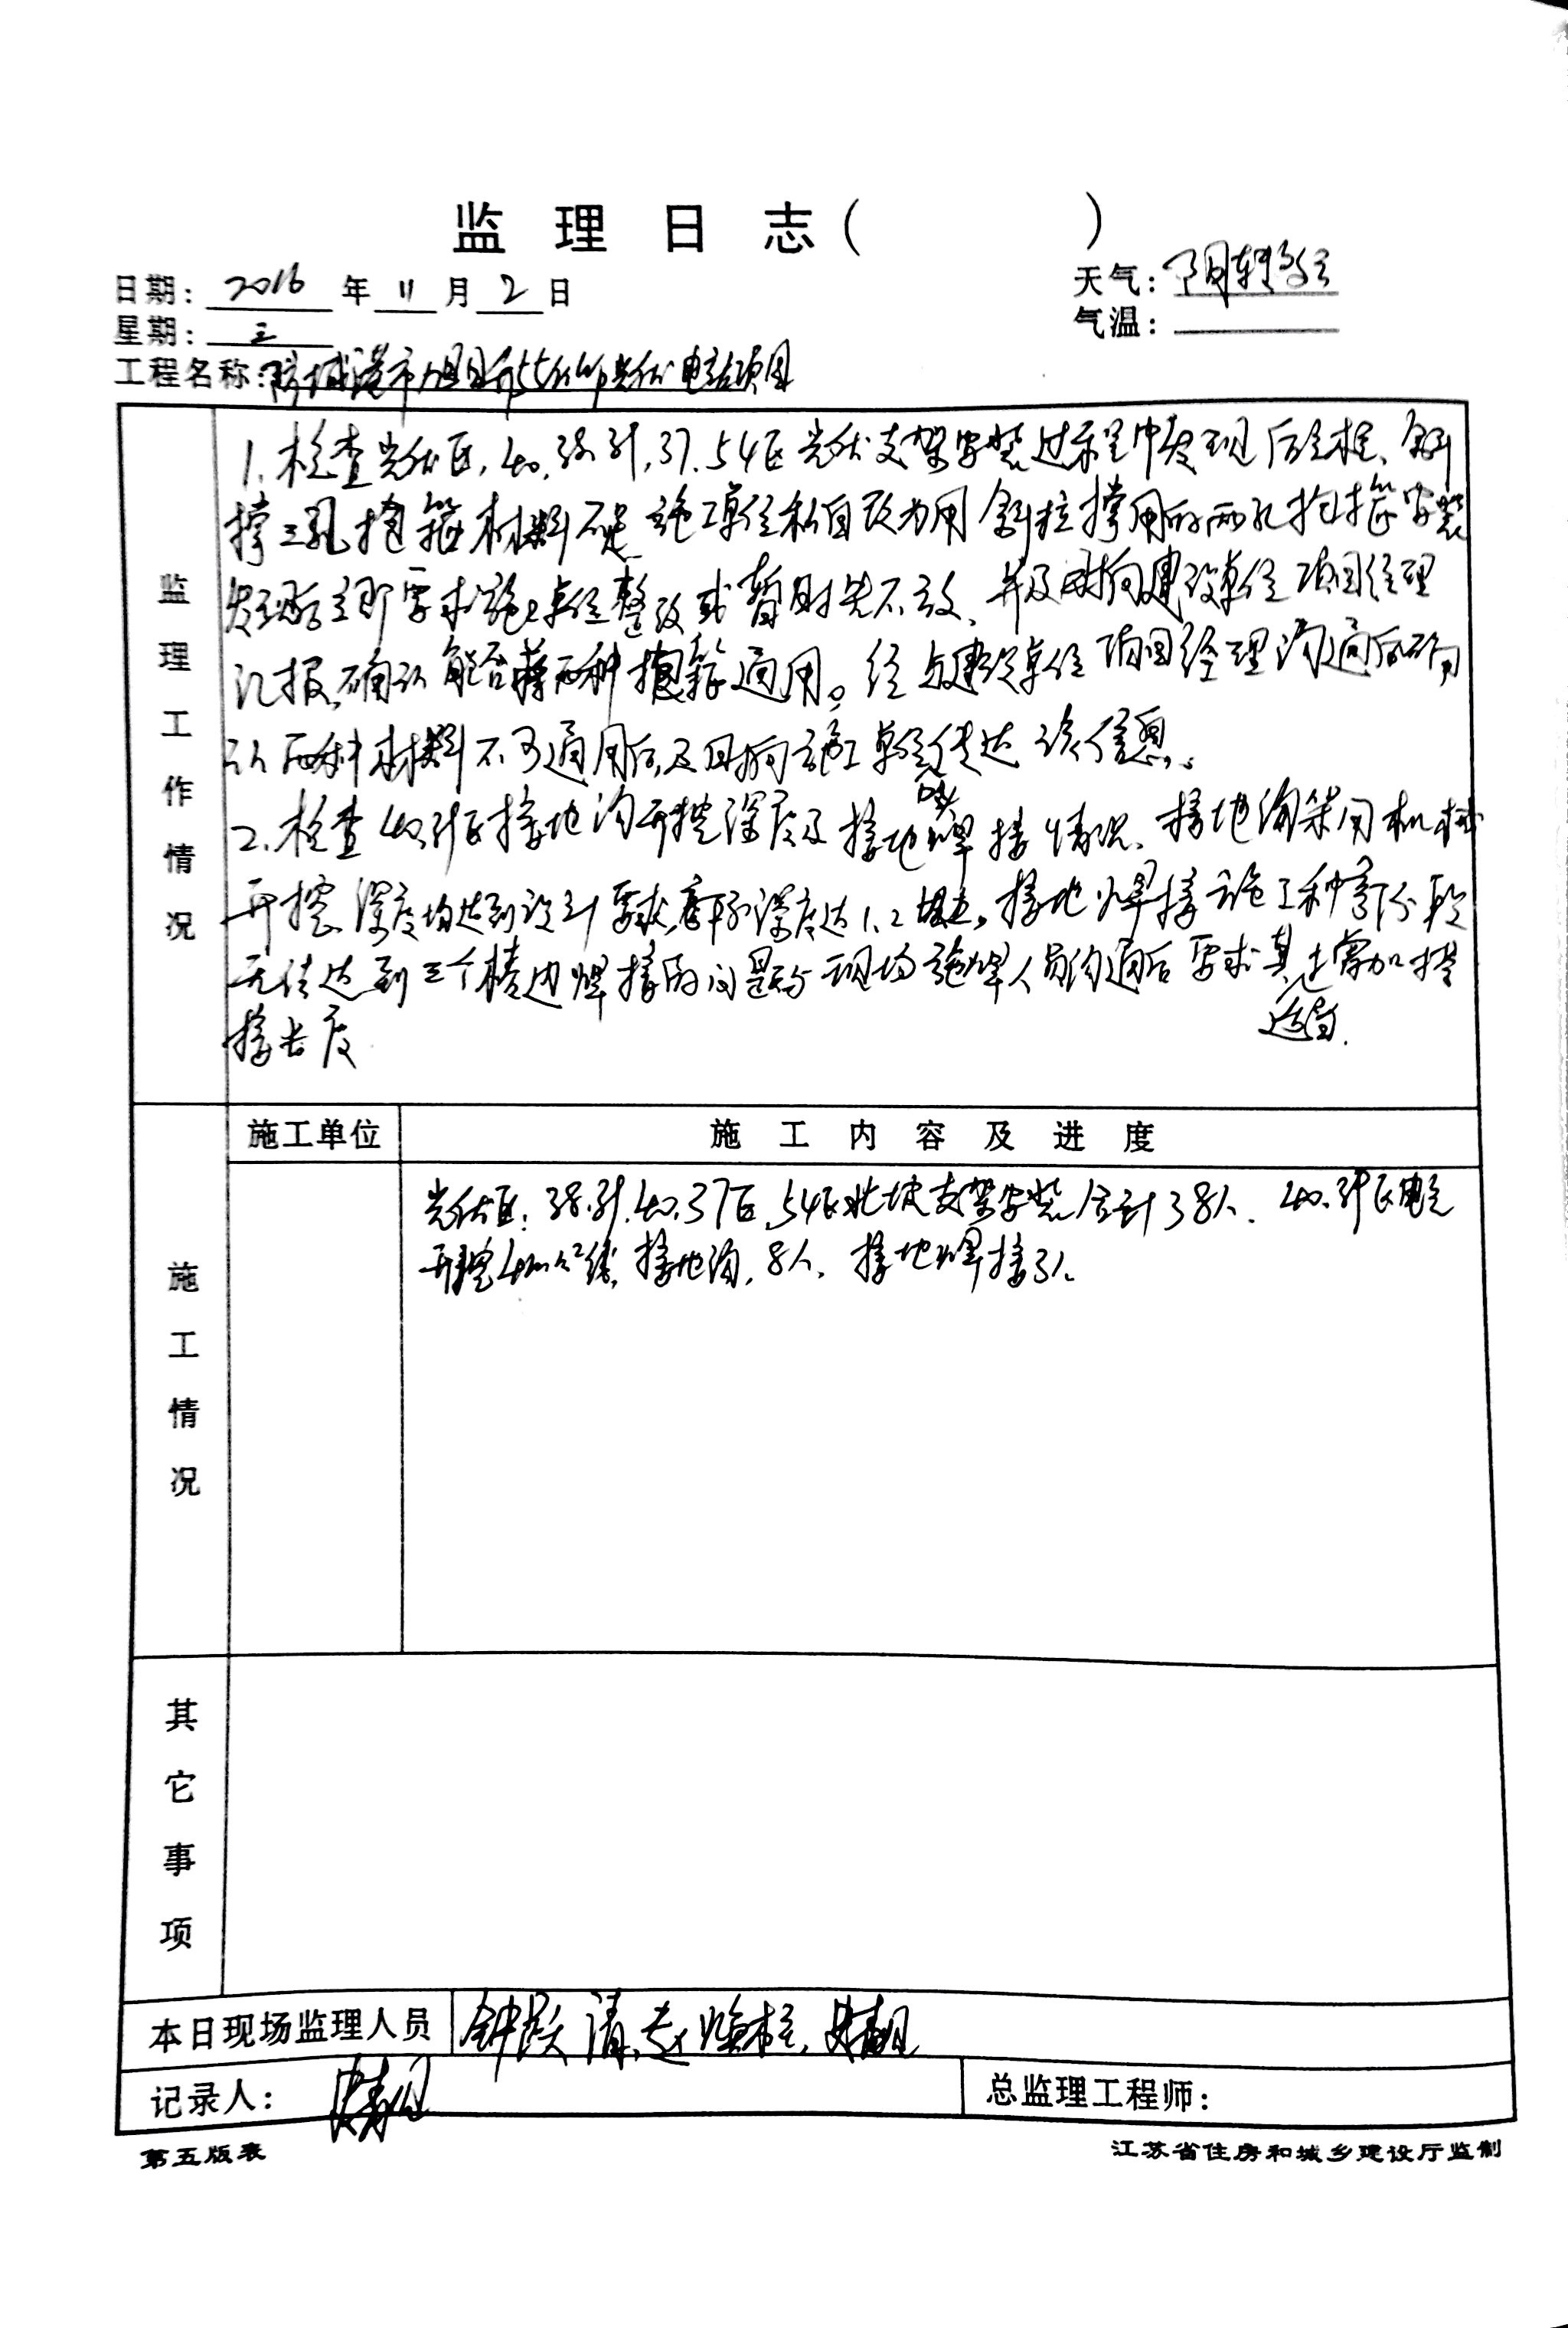 监 理 日 志 ( )
日期: 2016 年 11 月 2 日
天气: 阴转
星期: 三
气温:
工程名称: 防城港市 光伏电站项目
监理工作情况
1. 检查光伏区, 40, 38, 37. 54区光伏支架安装过程中发现后立柱、斜
撑三孔抱箍材料不足 施工单位私自改为用斜拉撑用的两孔抱箍安装
发现后立即要求施工单位整改或暂时先不放、并及时向建设单位项目经理
汇报,确认能否将两种抱箍通用。经与建设单位项目经理沟通后确
认两种材料不可通用后及时向施工单位传达该信息。
2. 检查40, 区接地沟开挖深度及接地焊接情况、接地沟采用机械
开挖、深度均达到设计要求, 深度达1.2 。接地焊接施工种
无法达到三个棱边焊接的问题与现场施焊人员沟通后要求其适当增加搭
接长度
施工情况
施工单位
施 工 内 容 及 进 度
光伏区: 38, 40, 37区, 54区北坡支架安装合计38人. 40,
开挖 接地沟, 8人. 接地焊接3人
其它事项
本日现场监理人员
记录人:
总监理工程师:
第五版表
江苏省住房和城乡建设厅监制